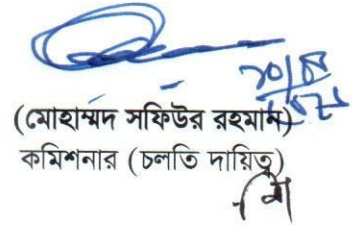 (মোহাম্মদ সফিউর রহমান)
কমিশনার (চলতি দায়িত্ব)